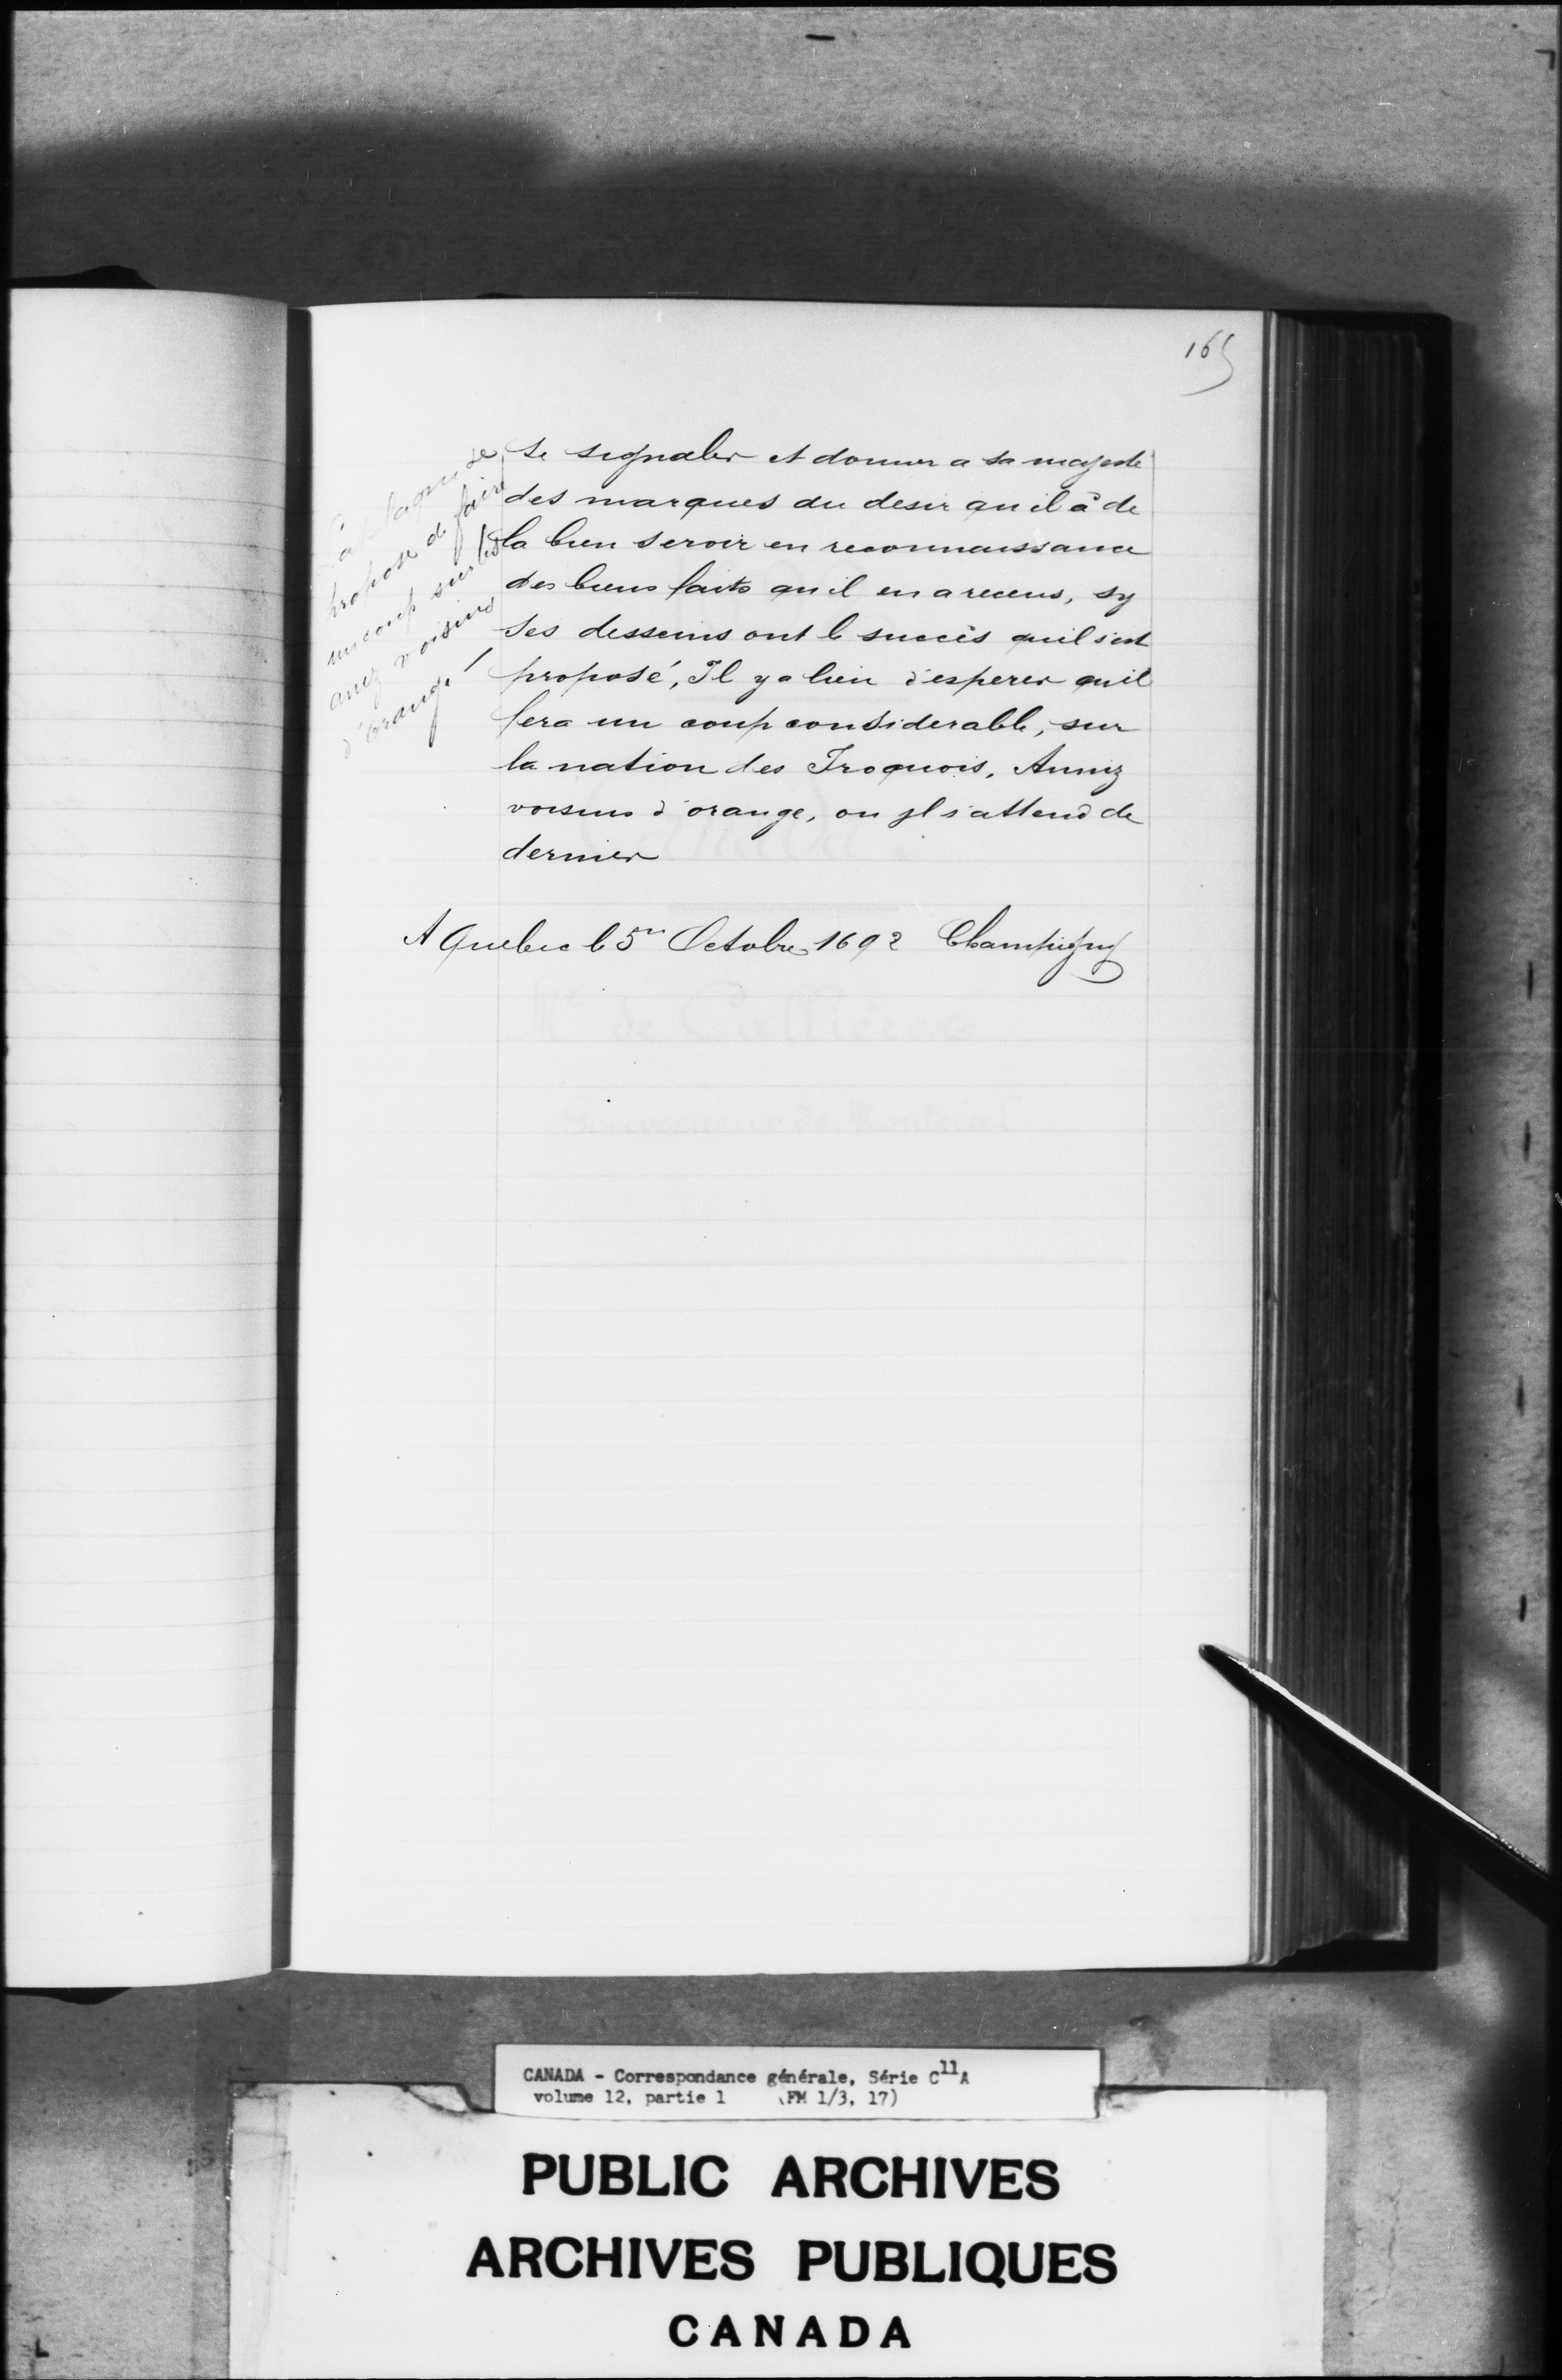 165
se signaler et donner a sa majesté
des marques du desir qu'il à de
la bien servir en reconnaissance
des biens faits qu'il en a receus, sy
ses desseins ont le succès qu'il s'est
proposé, Il y a lieu d'esperer qu'il
fera un coup considerable, sur
la nation des Iroquois, Anniez
voisins d'orange, ou jl s'attend de
dernier
se
propose de faire
un coup sur les
aniez voisins
d'orange
A Quebec le 5en Octobre 1692 Champigny
CANADA - Correspondance générale, Série C11A
volume 12, partie 1 (FM 1/3, 17)
PUBLIC ARCHIVES
ARCHIVES PUBLIQUES
CANADA